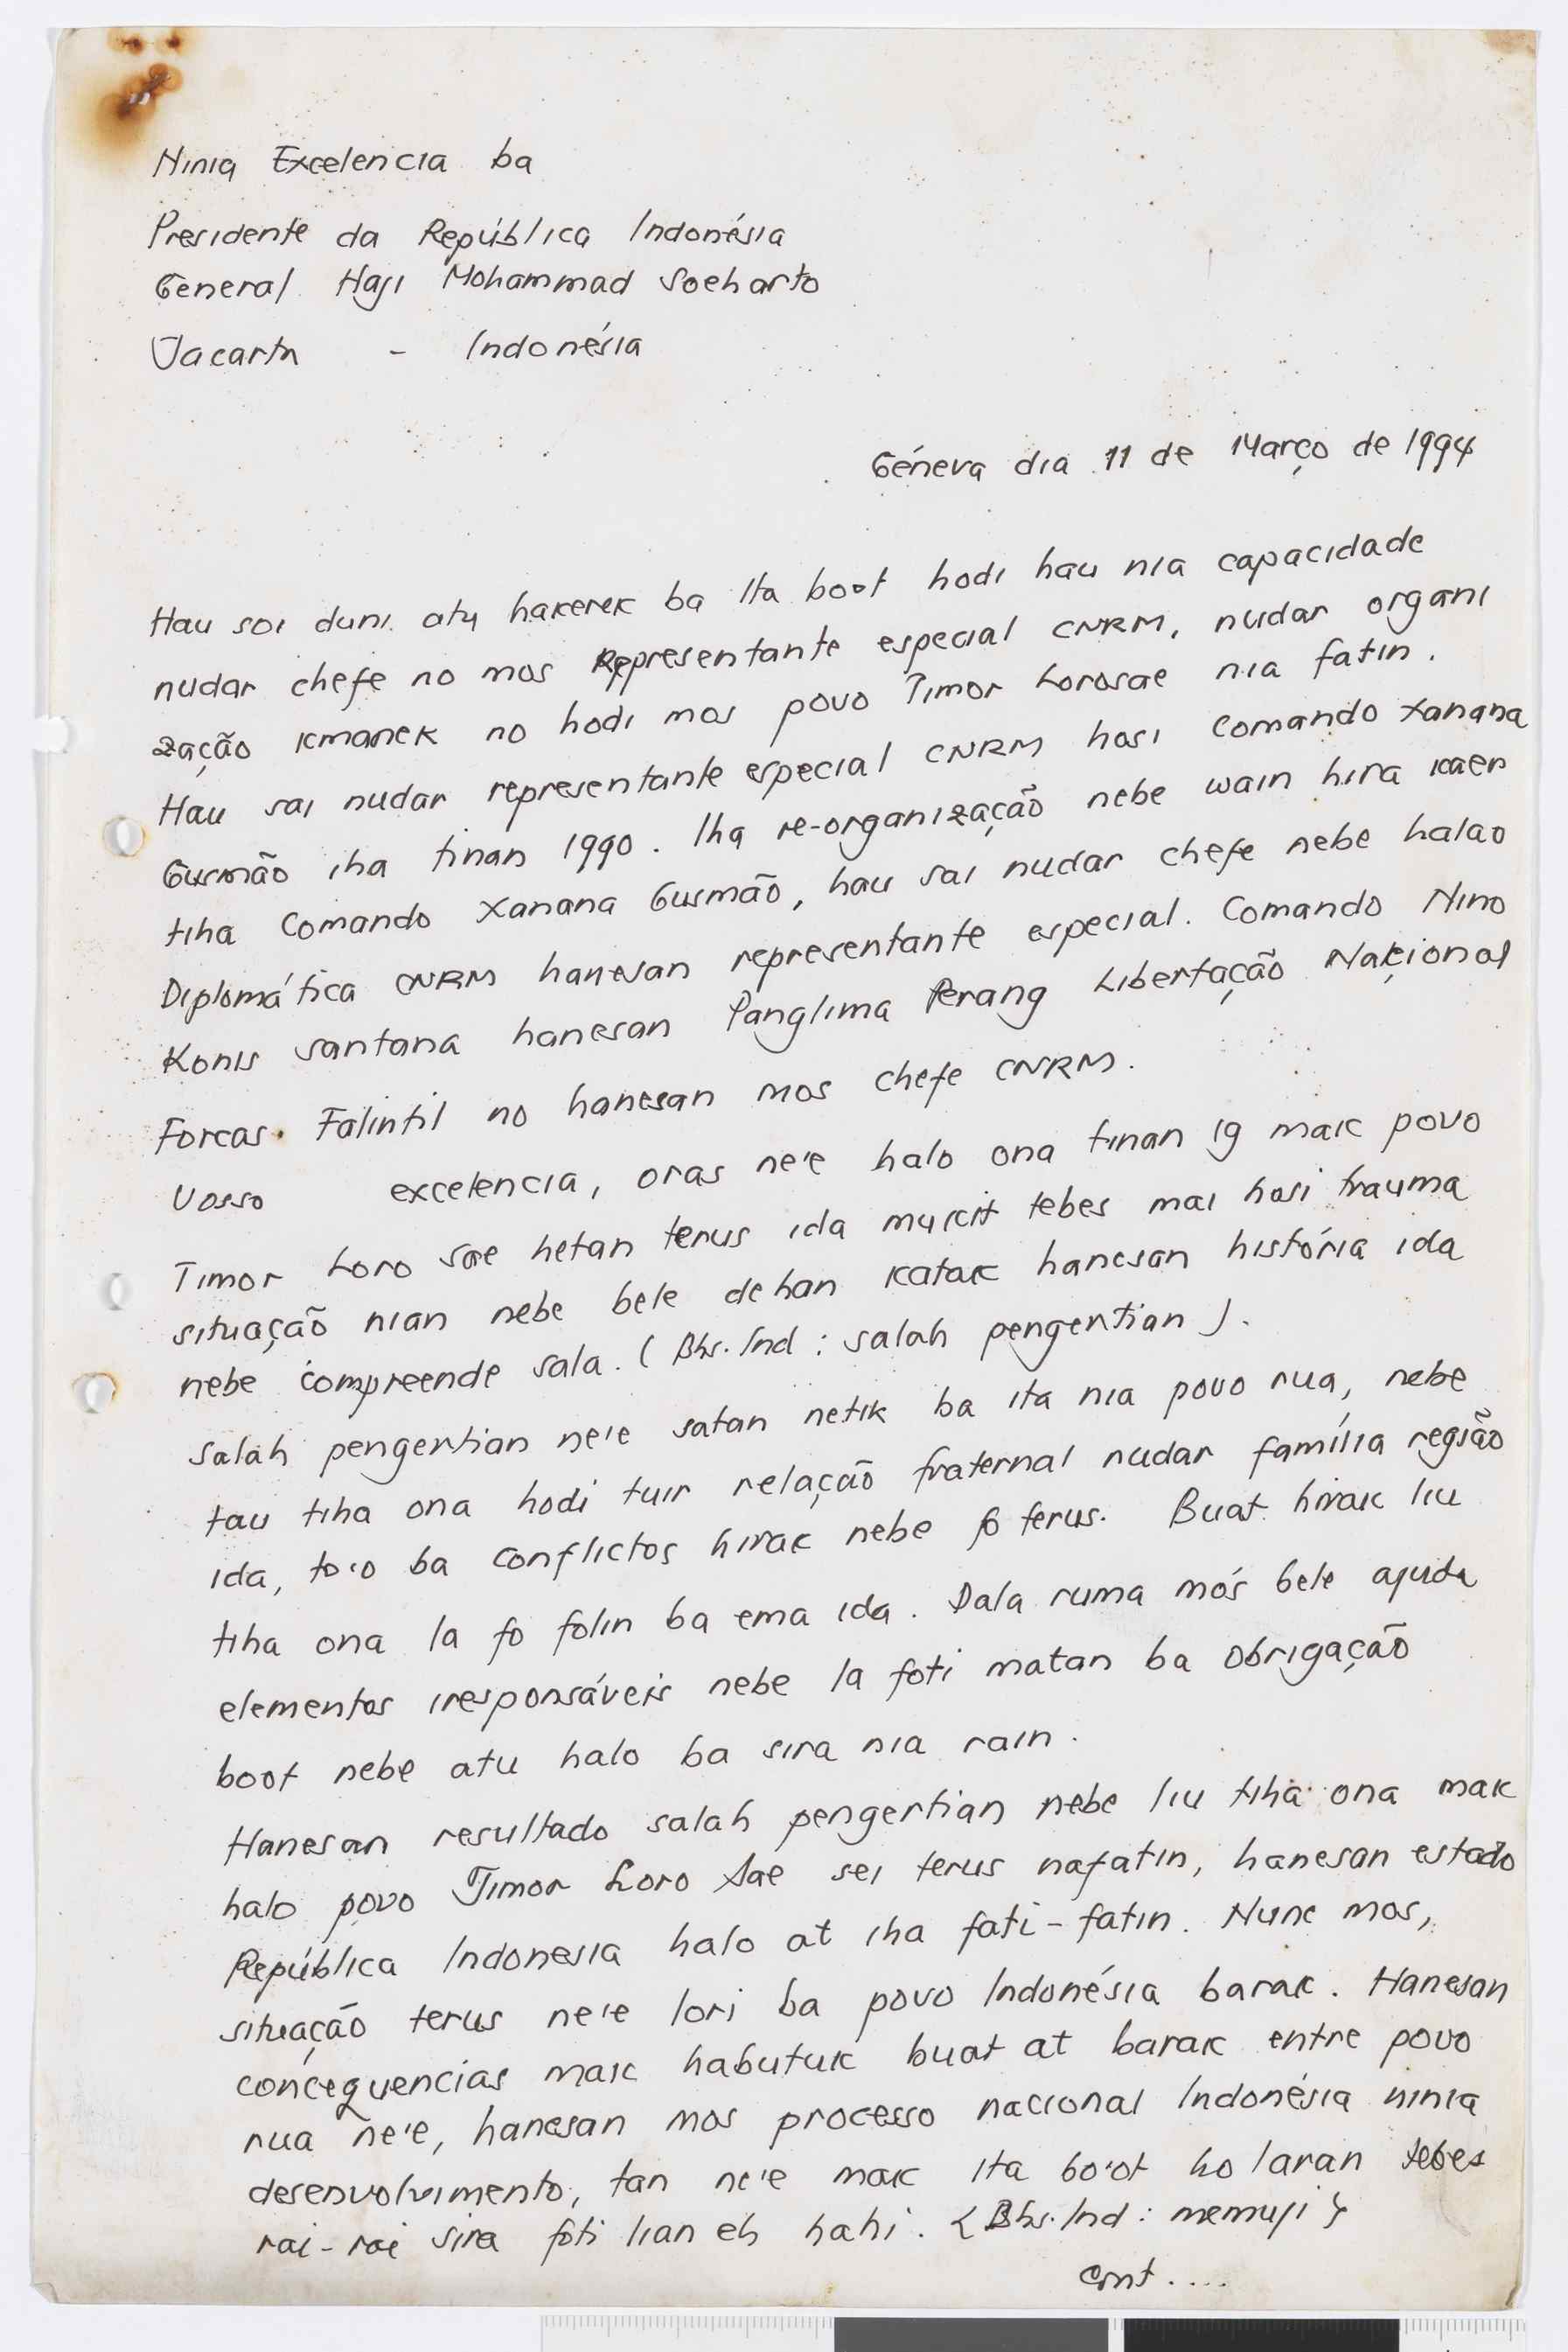 Ninia Excelencia ba
Presidente da República Indonésia
General Haji Mohammad Soeharto
Jacarta - Indonésia
Géneva dia 11 de Março de 1994
Hau soi duni atu hakerek ba Ita boot hodi hau nia capacidade
nudar chefe no mos Representante especial CNRM, nudar organi
zação kmanek no hodi mos povo Timor Lorosae nia fatin.
Hau sai nudar representante especial CNRM hosi Comando Xanana
Gusmão iha tinan 1990. Iha re-organização nebe wain hira kaer
tiha Comando Xanana Gusmão, hau sai nudar chefe nebe halao
Diplomática CNRM hanesan representante especial. Comando Nino
Konis Santana hanesan Panglima Perang Libertação Nacional
Forcas Falintil no hanesan mos chefe CNRM.
Vosso excelencia, oras ne'e halo ona tinan 19 mak povo
Timor Loro Sae hetan terus ida mukit tebes mai hosi trauma
situação nian nebe bele dehan katak hanesan história ida
nebe compreende sala. (Bhs. Ind : salah pengertian).
Salah pengertian ne'e satan netik ba ita nia povo rua, nebe
tau tiha ona hodi tuir relação fraternal nudar família região
ida, to'o ba conflictos hirak nebe fo terus. Buat hirak liu
tiha ona la fo folin ba ema ida. Dala ruma mós bele ajuda
elementos iresponsáveis nebe la foti matan ba obrigação
boot nebe atu halo ba sira nia rain.
Hanesan resultado salah pengertian nebe liu tiha ona mak
halo povo Timor Loro Sae sei terus nafatin, hanesan estado
República Indonesia halo at iha fati-fatin. Nune mos,
situação terus ne'e lori ba povo Indonésia barak. Hanesan
concequencias mak habutuk buat at barak entre povo
rua ne'e, hanesan mos processo nacional Indonésia ninia
desenvolvimento, tan ne'e mak Ita bo'ot ho laran tebes
rai-rai sira foti lian eh hahi. {Bhs. Ind : memuji}
cont....